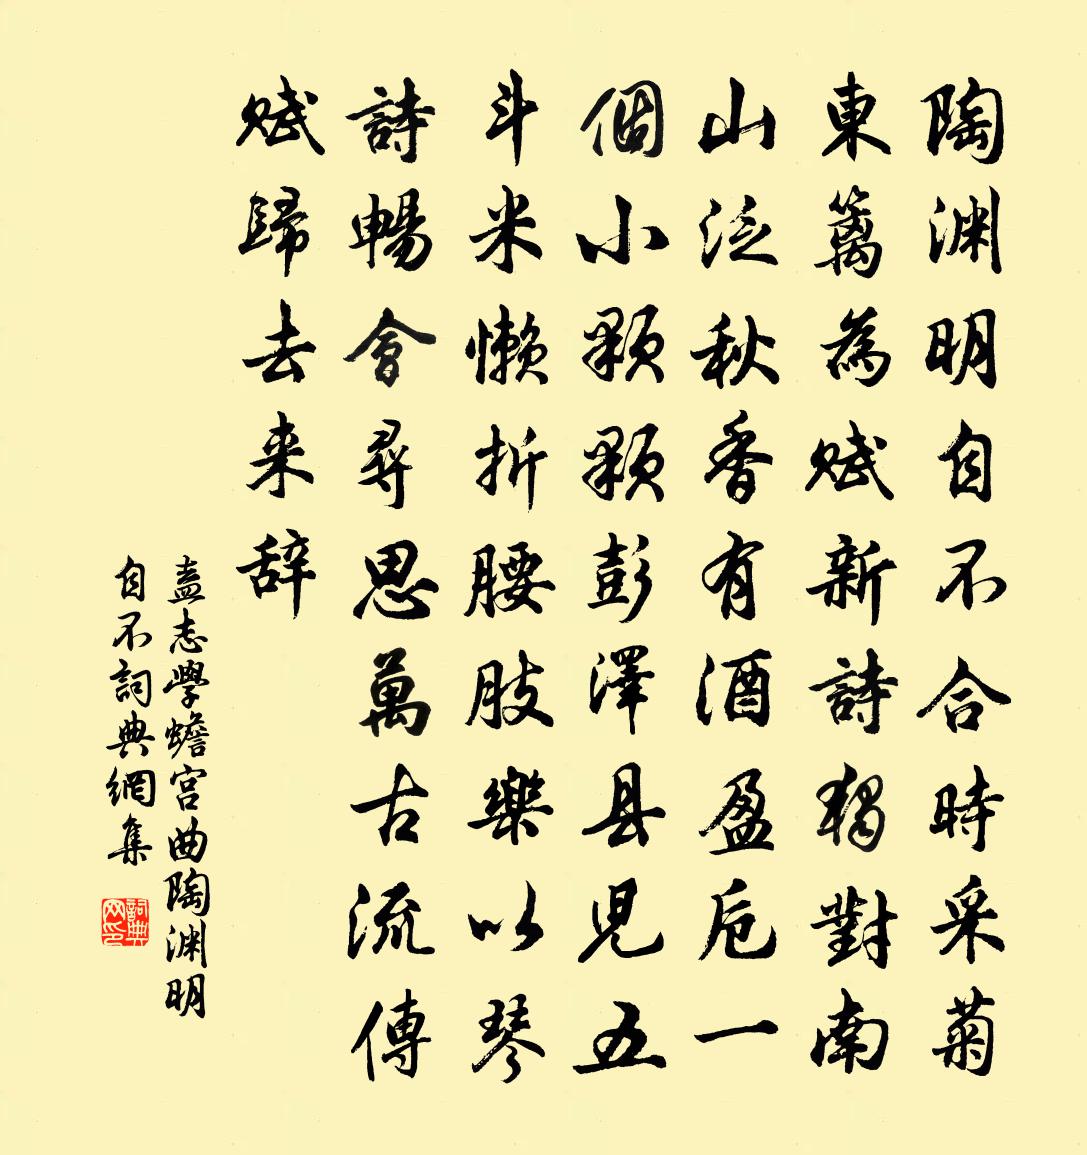 陶渊明自不合時采菊
東籬為賦新詩獨對南
山泛秋香有酒盈卮一
個小顆顆彭澤县兒五
斗米懒折腰肢樂以琴
詩暢會尋思萬古流傳
賦歸去来辞
盍志學蟾宫曲陶渊明
自不詞典網集
詞典网印